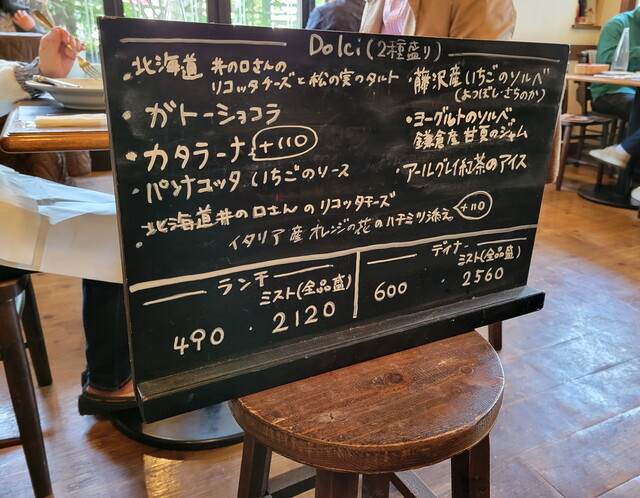 Dolci(2種盛り)
・北海道 井の口さんの
リコッタチーズと松の実のタルト
・ガトーショコラ
・カタラーナ +110
・パンナコッタ いちごのソース
・北海道井の口さんのリコッタチーズ
イタリア産オレンジの花のハチミツ添え +110
・藤沢産いちごのソルベ
(よつぼし・さちのか)
・ヨーグルトのソルベ
鎌倉産 甘夏のジャム
・アールグレイ紅茶のアイス
ランチ
ミスト(全品盛)
490 ・2120
ディナー
ミスト(全品盛)
600 ・2560